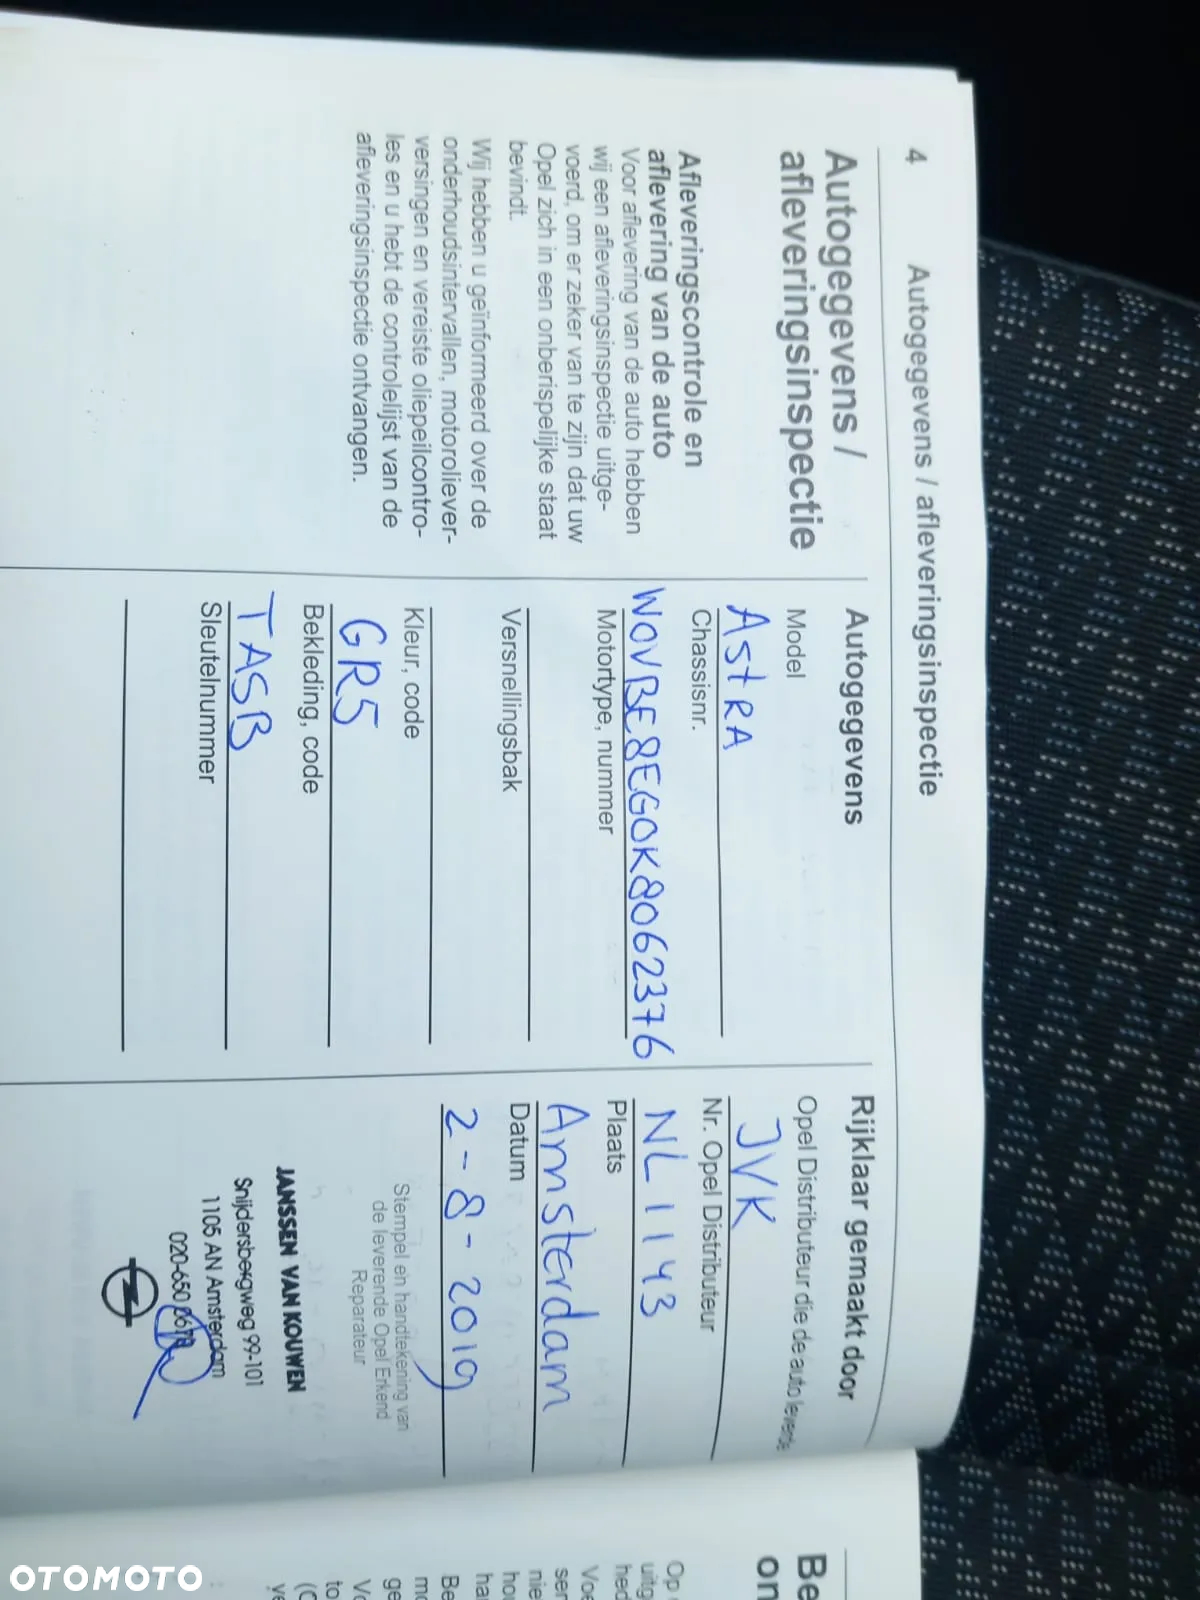 4
Autogegevens / afleveringsinspectie
Autogegevens /
afleveringsinspectie
Afleveringscontrole en
aflevering van de auto
Voor aflevering van de auto hebben
wij een afleveringsinspectie uitge-
voerd, om er zeker van te zijn dat uw
Opel zich in een onberispelijke staat
bevindt.
Wij hebben u geïnformeerd over de
onderhoudsintervallen, motoroliever-
versingen en vereiste oliepeilcontro-
les en u hebt de controlelijst van de
afleveringsinspectie ontvangen.
Autogegevens
Model
AStRA
Chassisnr.
WOVBE8EGOK8062376
Motortype, nummer
Versnellingsbak
Kleur, code
GR5
Bekleding, code
TASB
Sleutelnummer
Rijklaar gemaakt door
Opel Distributeur die de auto leverde
JVK
Nr. Opel Distributeur
NL 1143
Plaats
Amsterdam
Datum
2-8-2019
Stempel en handtekening van
de leverende Opel Erkend
Reparateur
JANSSEN VAN KOUWEN
Snijdersbergweg 99-101
1105 AN Amsterdam
020-650
Be
on
Op
uitg
hed
Voe
ser
nie
hou
ha
Be
mo
ge
Vo
to
(C
ve
OTOMOTO